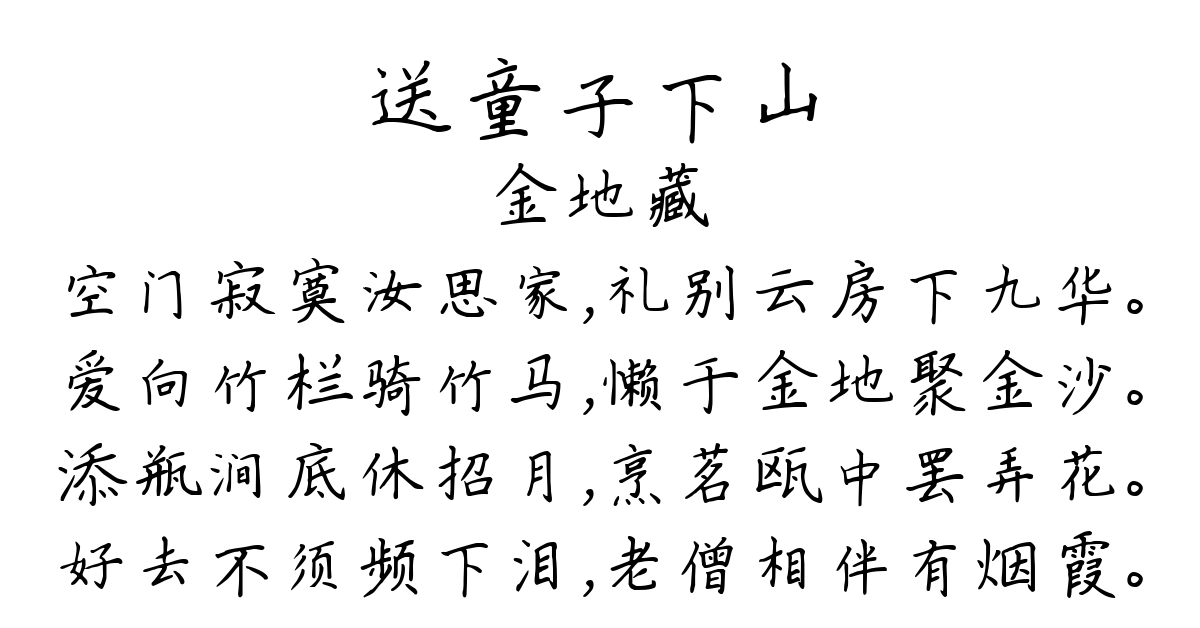 送童子下山
金地藏
空门寂寞汝思家,礼别云房下九华。
爱向竹栏骑竹马,懒于金地聚金沙。
添瓶涧底休招月,烹茗瓯中罢弄花。
好去不须频下泪,老僧相伴有烟霞。